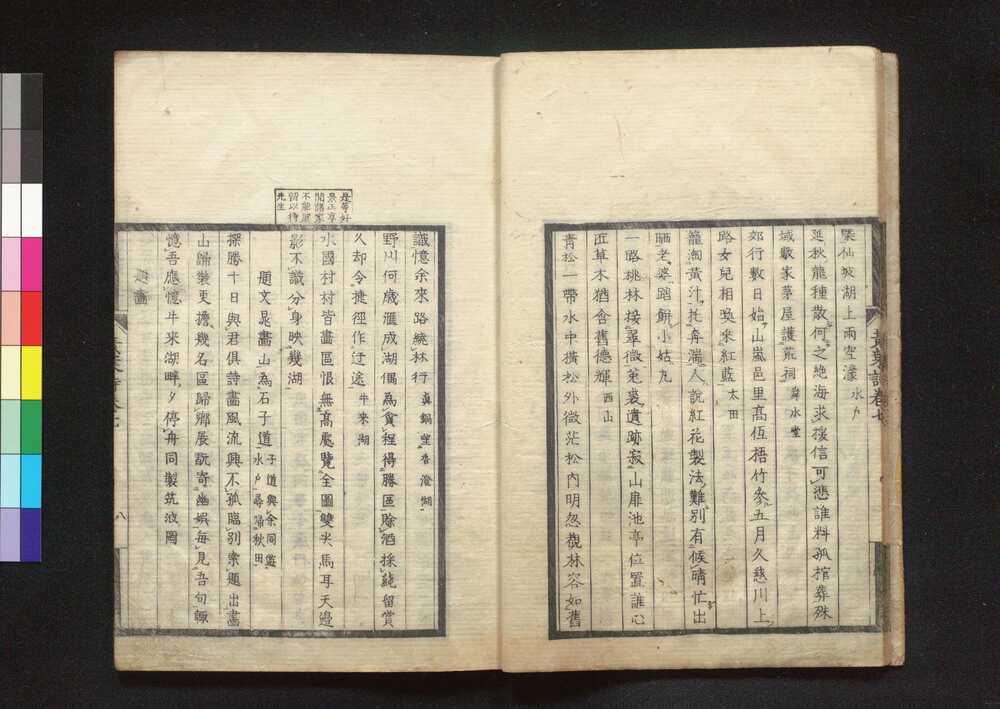 梁仙坡湖上雨空濛 水戶
延秋龍種散何之絶海求援信可悲誰料孤棺葬殊
域數家茅屋護荒祠 舜水堂
郊行數日始山嵐邑里髙低梧竹參五月久慈川上
路女兒相喚釆紅藍 太田
籠淘黃汁托舟湍人說紅花製法難別有候晴忙出
晒老婆蹈餅小姑丸
一路桃林接翠微菟裘遺跡寂山扉池亭位置誰心
匠草木猶含舊德輝 西山
靑松一帶水中橫松外微茫松內明忽觀林容如舊
黃葉 詩卷七
識憶余來路繞林行
野川何歲滙成湖偶爲貪程得勝區賒酒採 留賞
久却令捷徑作迂途 牛來湖
水國村村皆畫區恨無髙處覽全圖雙尖馬耳天邊
影不識分身映幾湖
題文晁畫山爲石子道 子道與余同遊水戶尋歸秋田
探勝十日與君俱詩畫風流興不孤臨別索題出畫
山歸裝更擔幾名區歸鄉展玩寄幽娯每見吾句輙
憶吾應憶牛來湖畔夕停舟同製筑波圖
題畫
八
是等好
景正享
閒諸家
不能
留以待
先生